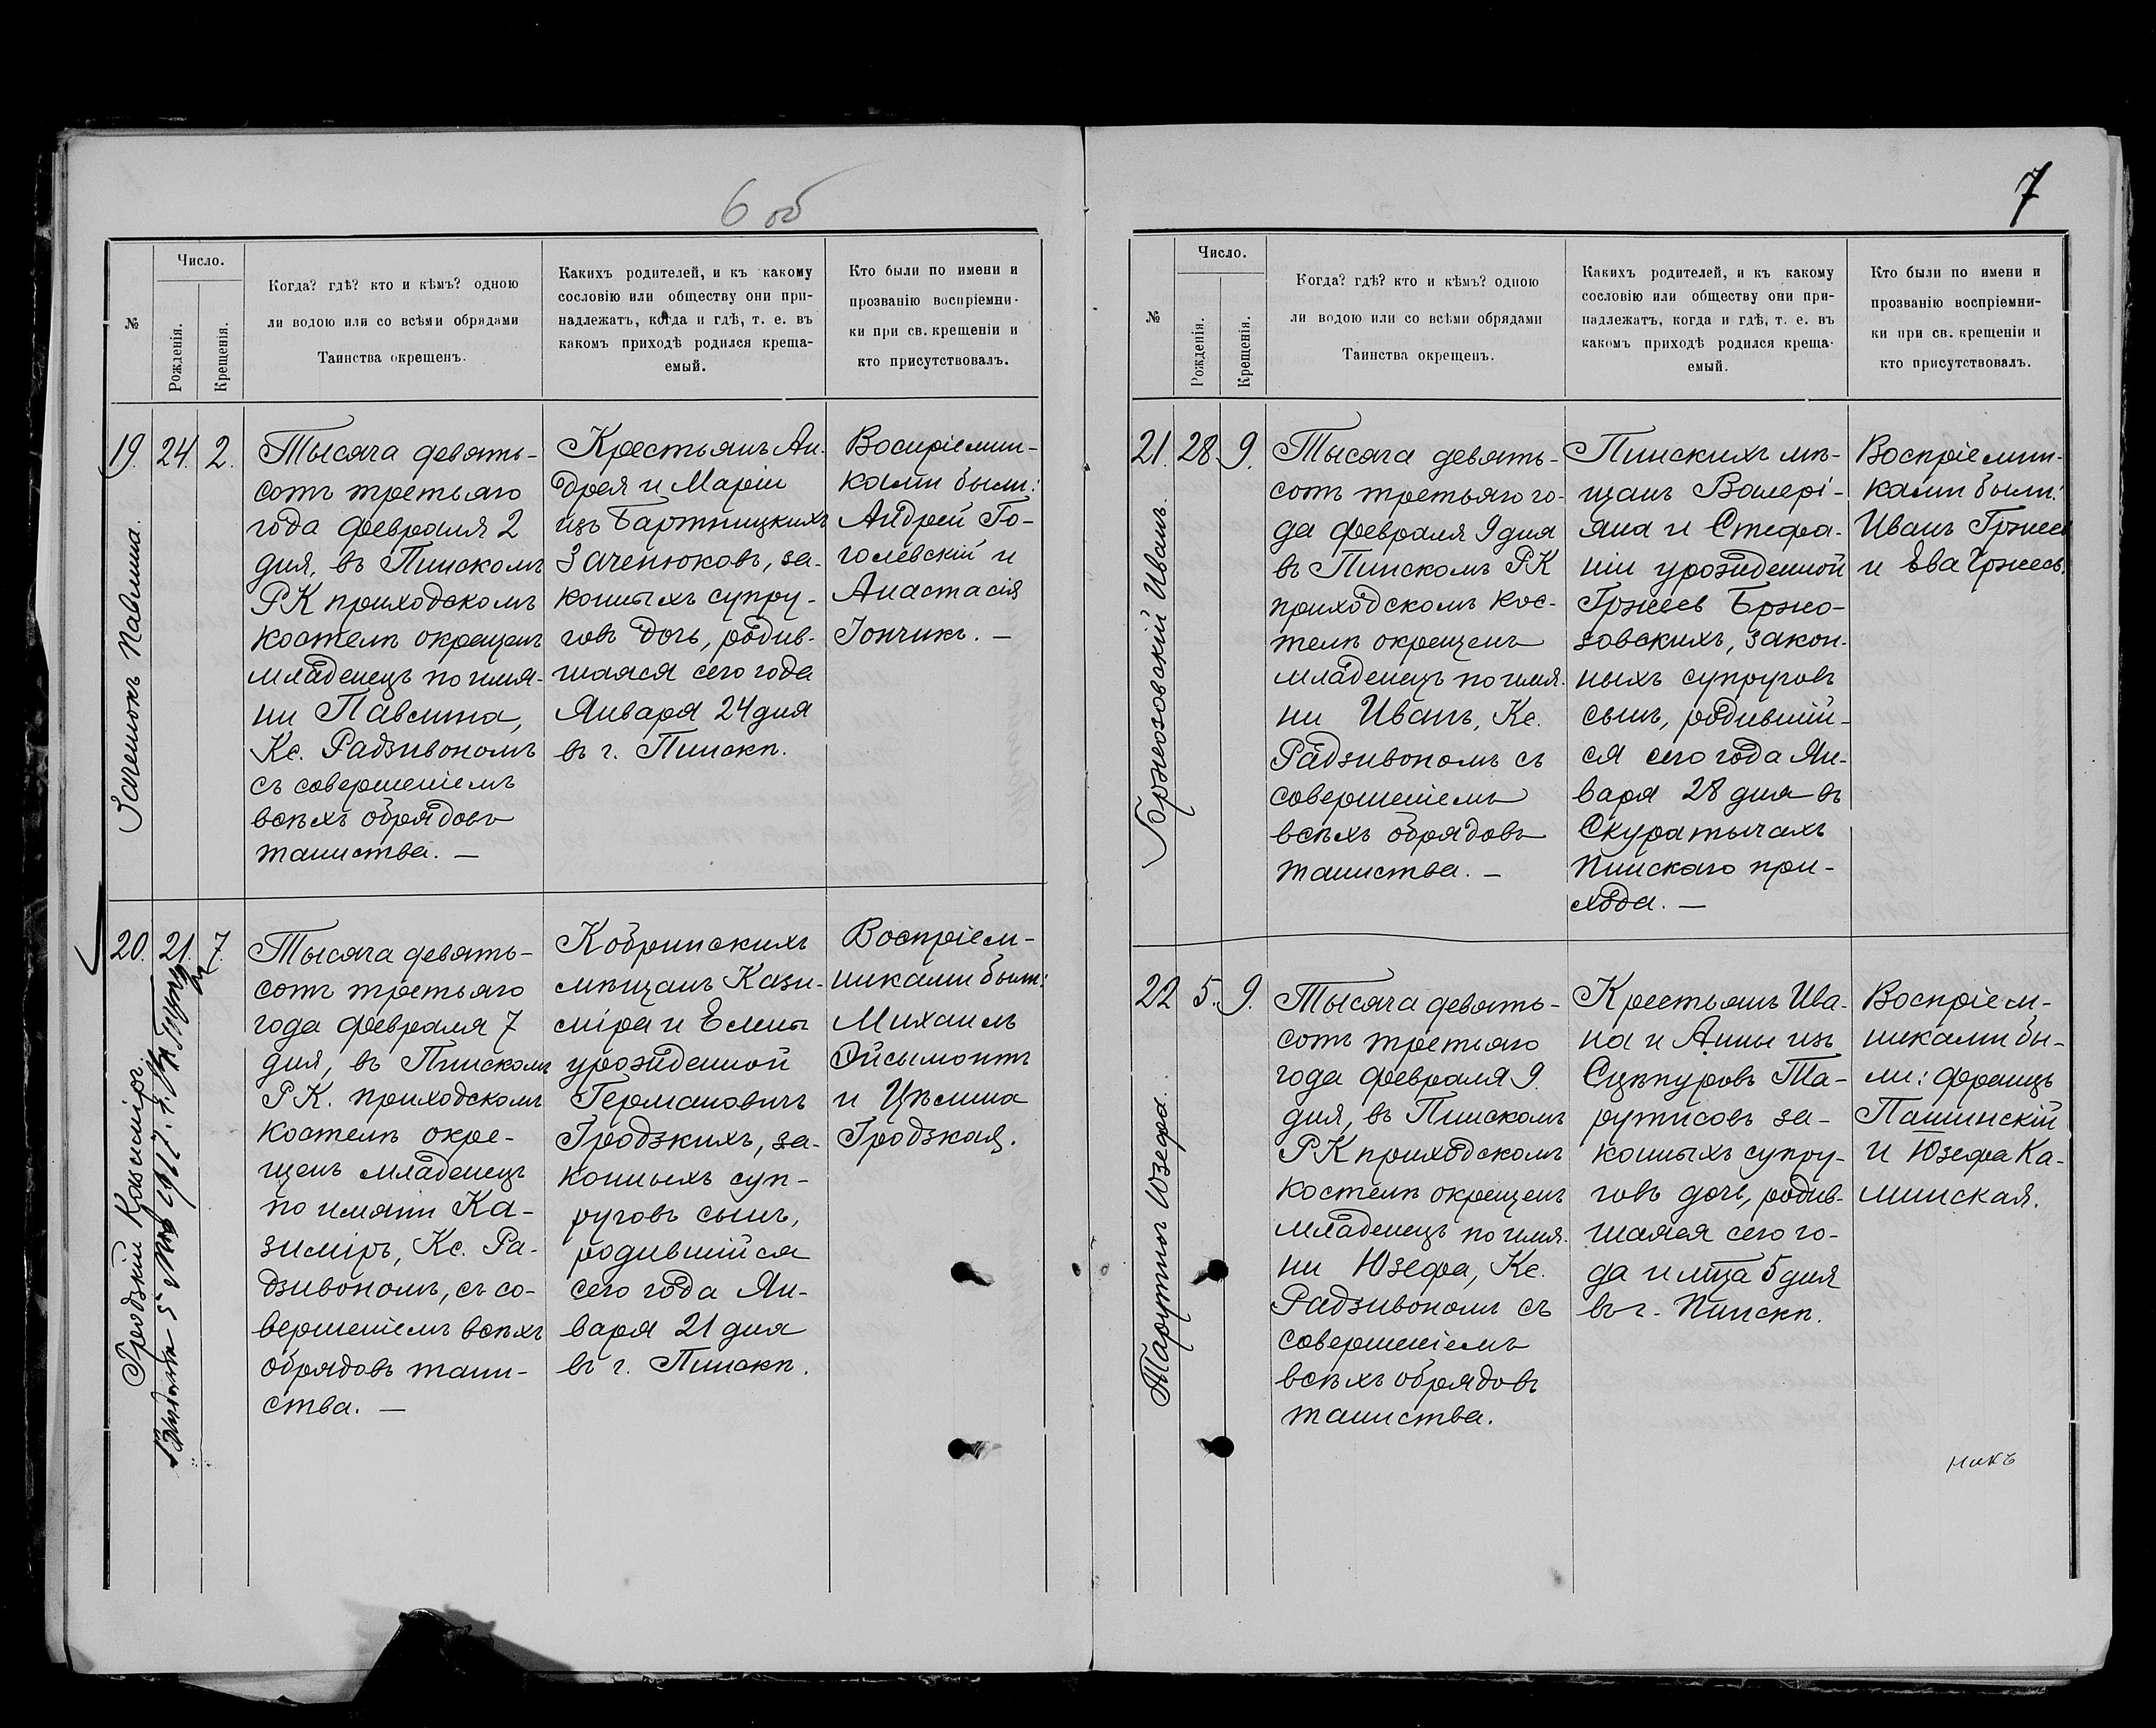 6 об
№
Число.
Рожденія.
Крещенія.
Когда? гдѣ? кто и кѣмъ? одною
ли водою или со всѣми обрядами
Таинства окрещенъ.
Какихъ родителей, и къ какому
сословію или обществу они при-
надлежатъ, когда и гдѣ, т. е. въ
какомъ приходѣ родился креща-
емый.
Кто были по имени и
прозванію воспріемни-
ки при св. крещеніи и
кто присутствовалъ.
19. 24. 2.
Заченюкъ Павлина.
Тысяча девять-
сотъ третьяго
года февраля 2
дня, въ Пинскомъ
РК приходскомъ
костелѣ окрещенъ
младенецъ по имя-
ни Павлина,
Кс. Радзивономъ
съ совершеніемъ
всѣхъ обрядовъ
таинства. —
Крестьянъ Ан-
дрея и Маріи
изъ Бартницкихъ
Заченюковъ, за-
конныхъ супру-
говъ дочь, родив-
шаяся сего года
Января 24 дня
въ г. Пинскѣ.
Воспріемни-
ками были:
Андрей Го-
голевскій и
Анастасія
Іончикъ. —
20. 21. 7.
Гродзкій Казиміръ.
Тысяча девять-
сотъ третьяго
года февраля 7
дня, въ Пинскомъ
РК. приходскомъ
костелѣ окре-
щенъ младенецъ
по имяни Ка-
зиміръ, Кс. Ра-
дзивономъ, съ со-
вершеніемъ всѣхъ
обрядовъ таин-
ства. —
Кобринскихъ
мѣщанъ Кази-
міра и Елены
урожденной
Германовичъ
Гродзкихъ, за-
конныхъ суп-
руговъ сынъ,
родившійся
сего года Ян-
варя 21 дня
въ г. Пинскѣ.
Воспріем-
никами были:
Михаилъ
Эйсымонтъ
и Цѣлина
Гродзкая.
7
№
Число.
Рожденія.
Крещенія.
Когда? гдѣ? кто и кѣмъ? одною
ли водою или со всѣми обрядами
Таинства окрещенъ.
Какихъ родителей, и къ какому
сословію или обществу они при-
надлежатъ, когда и гдѣ, т. е. въ
какомъ приходѣ родился креща-
емый.
Кто были по имени и
прозванію воспріемни-
ки при св. крещеніи и
кто присутствовалъ.
21. 28. 9.
Бржозовскій Иванъ.
Тысяча девять-
сотъ третьяго го-
да февраля 9 дня
въ Пинскомъ РК
приходскомъ кос-
телѣ окрещенъ
младенецъ по имя-
ни Иванъ, Кс.
Радзивономъ съ
совершеніемъ
всѣхъ обрядовъ
таинства. —
Пинскихъ мѣ-
щанъ Валері-
яна и Стефа-
ніи урожденной
Гржесь Бржо-
зовскихъ, закон-
ныхъ супруговъ
сынъ, родившій-
ся сего года Ян-
варя 28 дня въ
Скуратичахъ
Пинскаго при-
хода. —
Воспріемни-
ками были:
Иванъ Гржесь
и Ева Гржесь.
22 5. 9.
Тарутисъ Юзефа.
Тысяча девять-
сотъ третьяго
года февраля 9
дня, въ Пинскомъ
РК приходскомъ
костелѣ окрещенъ
младенецъ по имя-
ни Юзефа, Кс.
Радзивономъ съ
совершеніемъ
всѣхъ обрядовъ
таинства.
Крестьянъ Ива-
на и Анны изъ
Сцѣпуровъ Та-
рутисовъ за-
конныхъ супру-
говъ дочь, родив-
шаяся сего го-
да и мца 5 дня
въ г. Пинскѣ.
Воспріем-
никами бы-
ли: Францъ
Пашинскій
и Юзефа Ка-
минская.
никъ